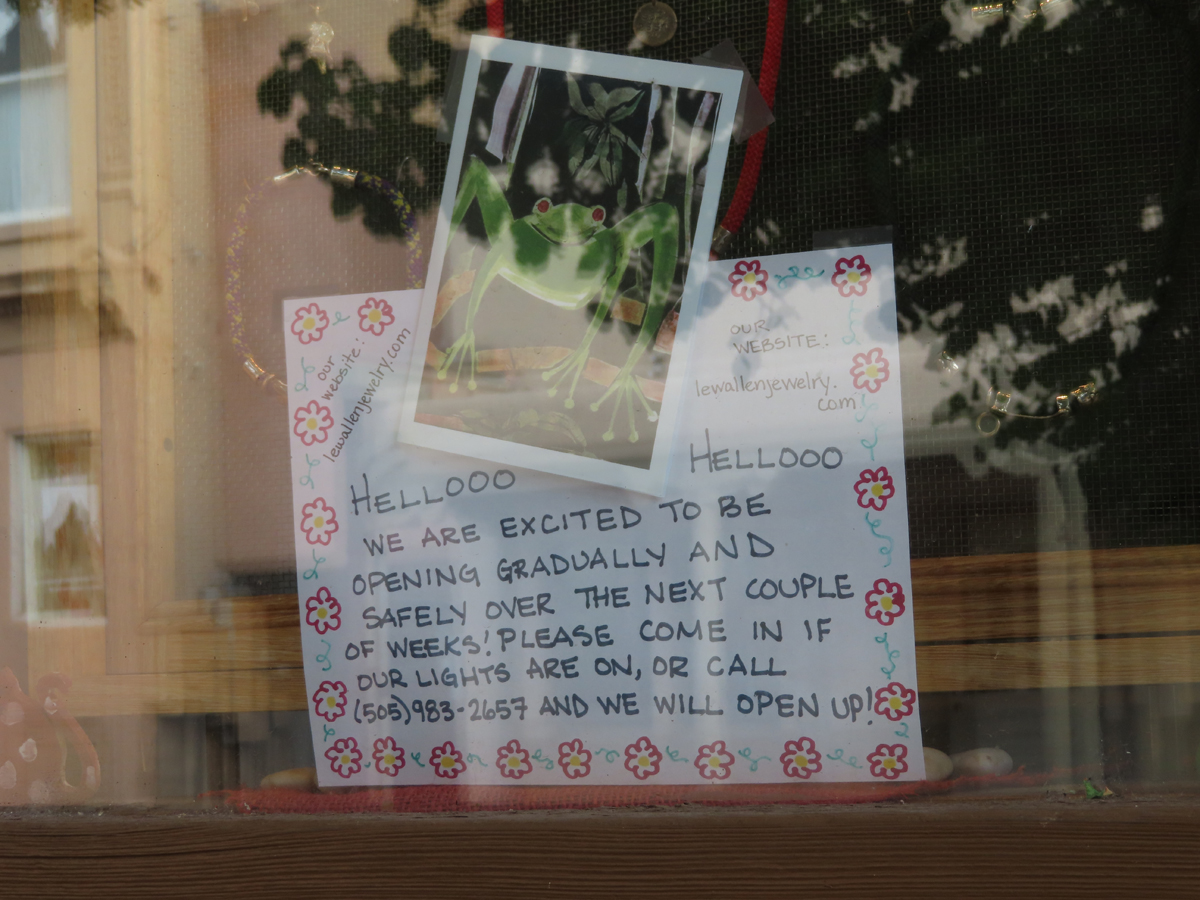 our
website:
lewallenjewelry.com
OUR
WEBSITE:
lewallenjewelry.
com
HELLOOO HELLOOO
WE ARE EXCITED TO BE
OPENING GRADUALLY AND
SAFELY OVER THE NEXT COUPLE
OF WEEKS! PLEASE COME IN IF
OUR LIGHTS ARE ON, OR CALL
(505)983-2657 AND WE WILL OPEN UP!